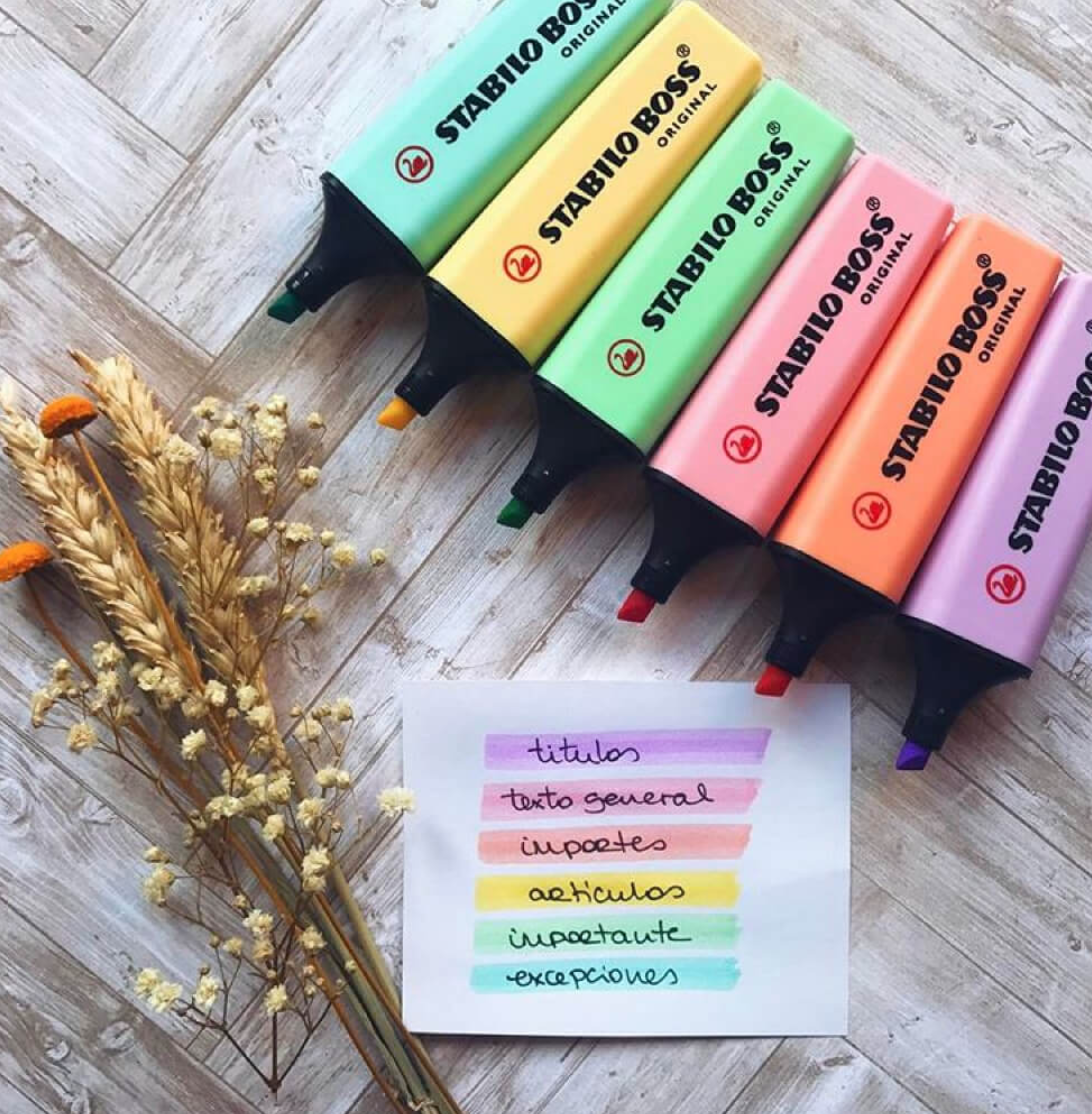 STABILO BOSS
ORIGINAL
STABILO BOSS®
ORIGINAL
STABILO BOSS®
ORIGINAL
STABILO BOSS®
ORIGINAL
STABILO BOSS®
ORIGINAL
STABILO BOSS
titulos
texto general
importes
articulos
importante
excepciones